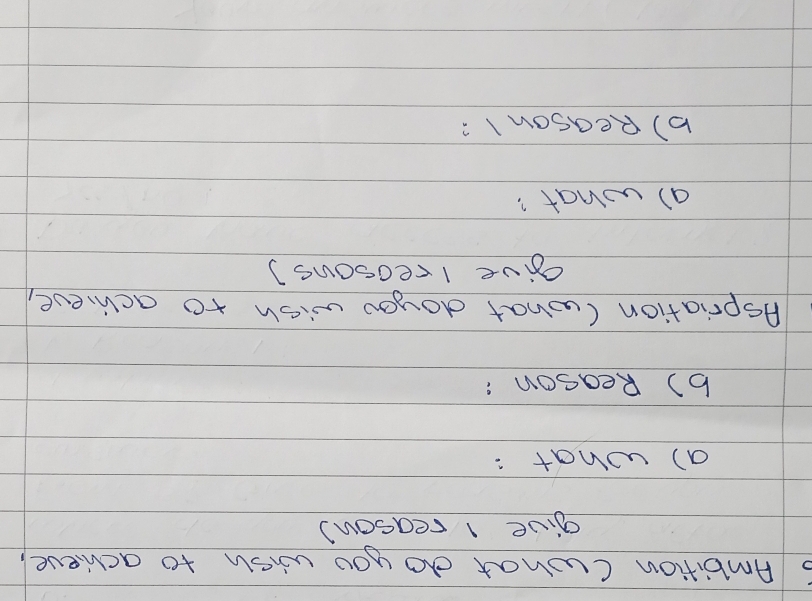 Ambition (what do you wish to achieve,
give 1 reason)
a) what :
b) Reason :
Aspriation (what do you wish to achieve,
give 1 reasons)
a) what :
b) Reason 1 :